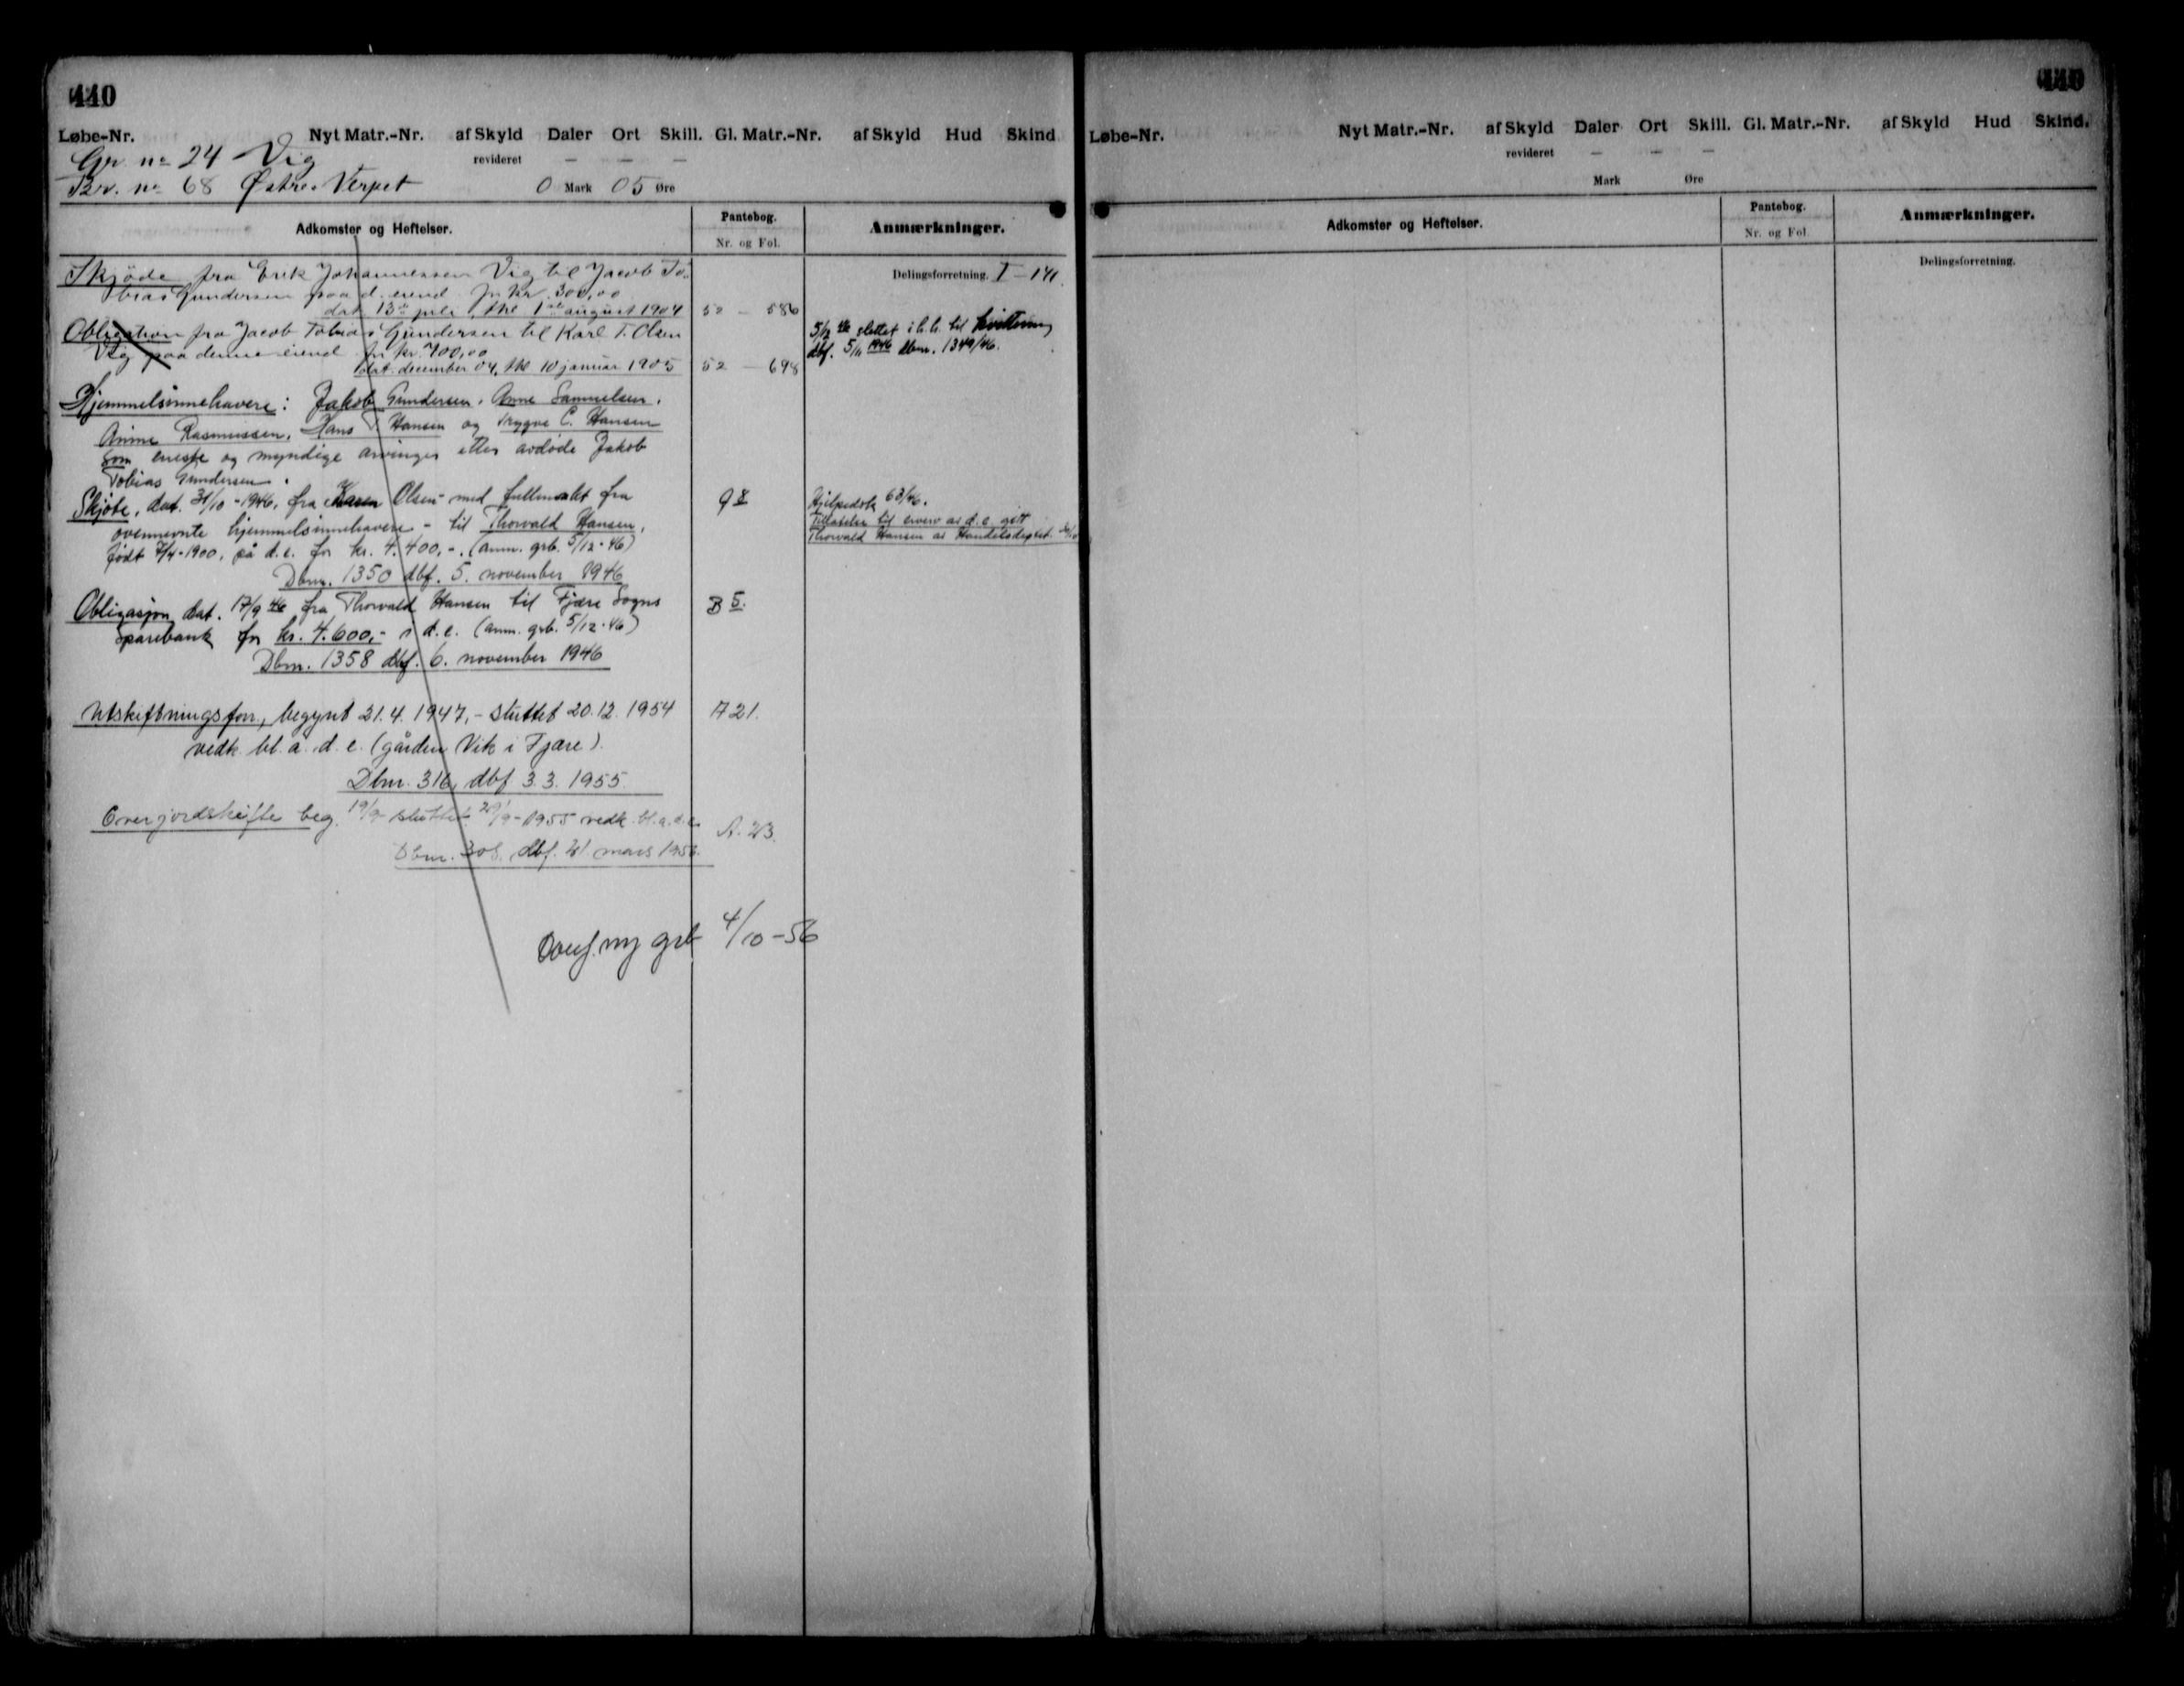 440
Løbe-Nr. Nyt Matr.-Nr. af Skyld Daler Ort Skill. Gl. Matr.-Nr. af Skyld Hud Skind
Gr. no 24 Vig revideret — — —
Br. no 68 Østre Verpet 0 Mark 05 Øre
Adkomster og Heftelser. Pantebog. Nr. og Fol. Anmærkninger.
Skjøde fra Erik Johannessen Vig til Jacob To- Delingsforretning. I - 141.
bias Gundersen paa d. eiend. for kr. 300,00
dat. 13de juli, thl 1ste august 1904 52 — 586
Obligation fra Jacob Tobias Gundersen til Karl T. Olsen 5/12 46 slettet i h.h. til kvittering
Vig paa denne eiend. for kr. 700,00 dbf. 5/11 1946 dbnr. 1349/46.
dat. december 04, thl 10 januar 1905 52 — 698
Hjemmelsinnehavere: Jakob Gundersen, Anne Samuelsen,
Anine Rasmussen, Hans T. Hansen og Trygve C. Hansen
som eneste og myndige arvinger etter avdøde Jakob
Tobias Gundersen.
Skjøte, dat. 31/10-1946, fra Karen Olsen - med fullmakt fra 98 Hjelpedok 63/46.
ovennevnte hjemmelsinnehavere - til Thorvald Hansen, Tillatelse til erverv av d. e. gitt
født 7/4-1900, på d. e. for kr. 4.400,-. (anm. grb. 5/12-46) Thorvald Hansen av Handelsdeptet.
Dbnr. 1350 dbf. 5. november 1946
Obligasjon dat. 17/9 46 fra Thorvald Hansen til Fjære Sogns B 5.
Sparebank for kr. 4.600,- i d. e. (anm. grb. 5/12-46)
Dbnr. 1358 dbf. 6. november 1946
Utskiftningsforr., begynt 21.4.1947, - sluttet 20.12.1954 A 21.
vedk. bl. a. d. e. (gården Vik i Fjære).
Dbnr. 316, dbf 3.3.1955.
Overjordskifte beg. 19/9 sluttet 29/9-1955 vedk. bl. a. d. e. A. 23.
Dbnr. 308, dbf. 21 mars 1956.
Overf. ny grb 4/10-56
440
Løbe-Nr. Nyt Matr.-Nr. af Skyld Daler Ort Skill. Gl. Matr.-Nr. af Skyld Hud Skind.
revideret — — —
Mark Øre
Adkomster og Heftelser. Pantebog. Nr. og Fol. Anmærkninger.
Delingsforretning.